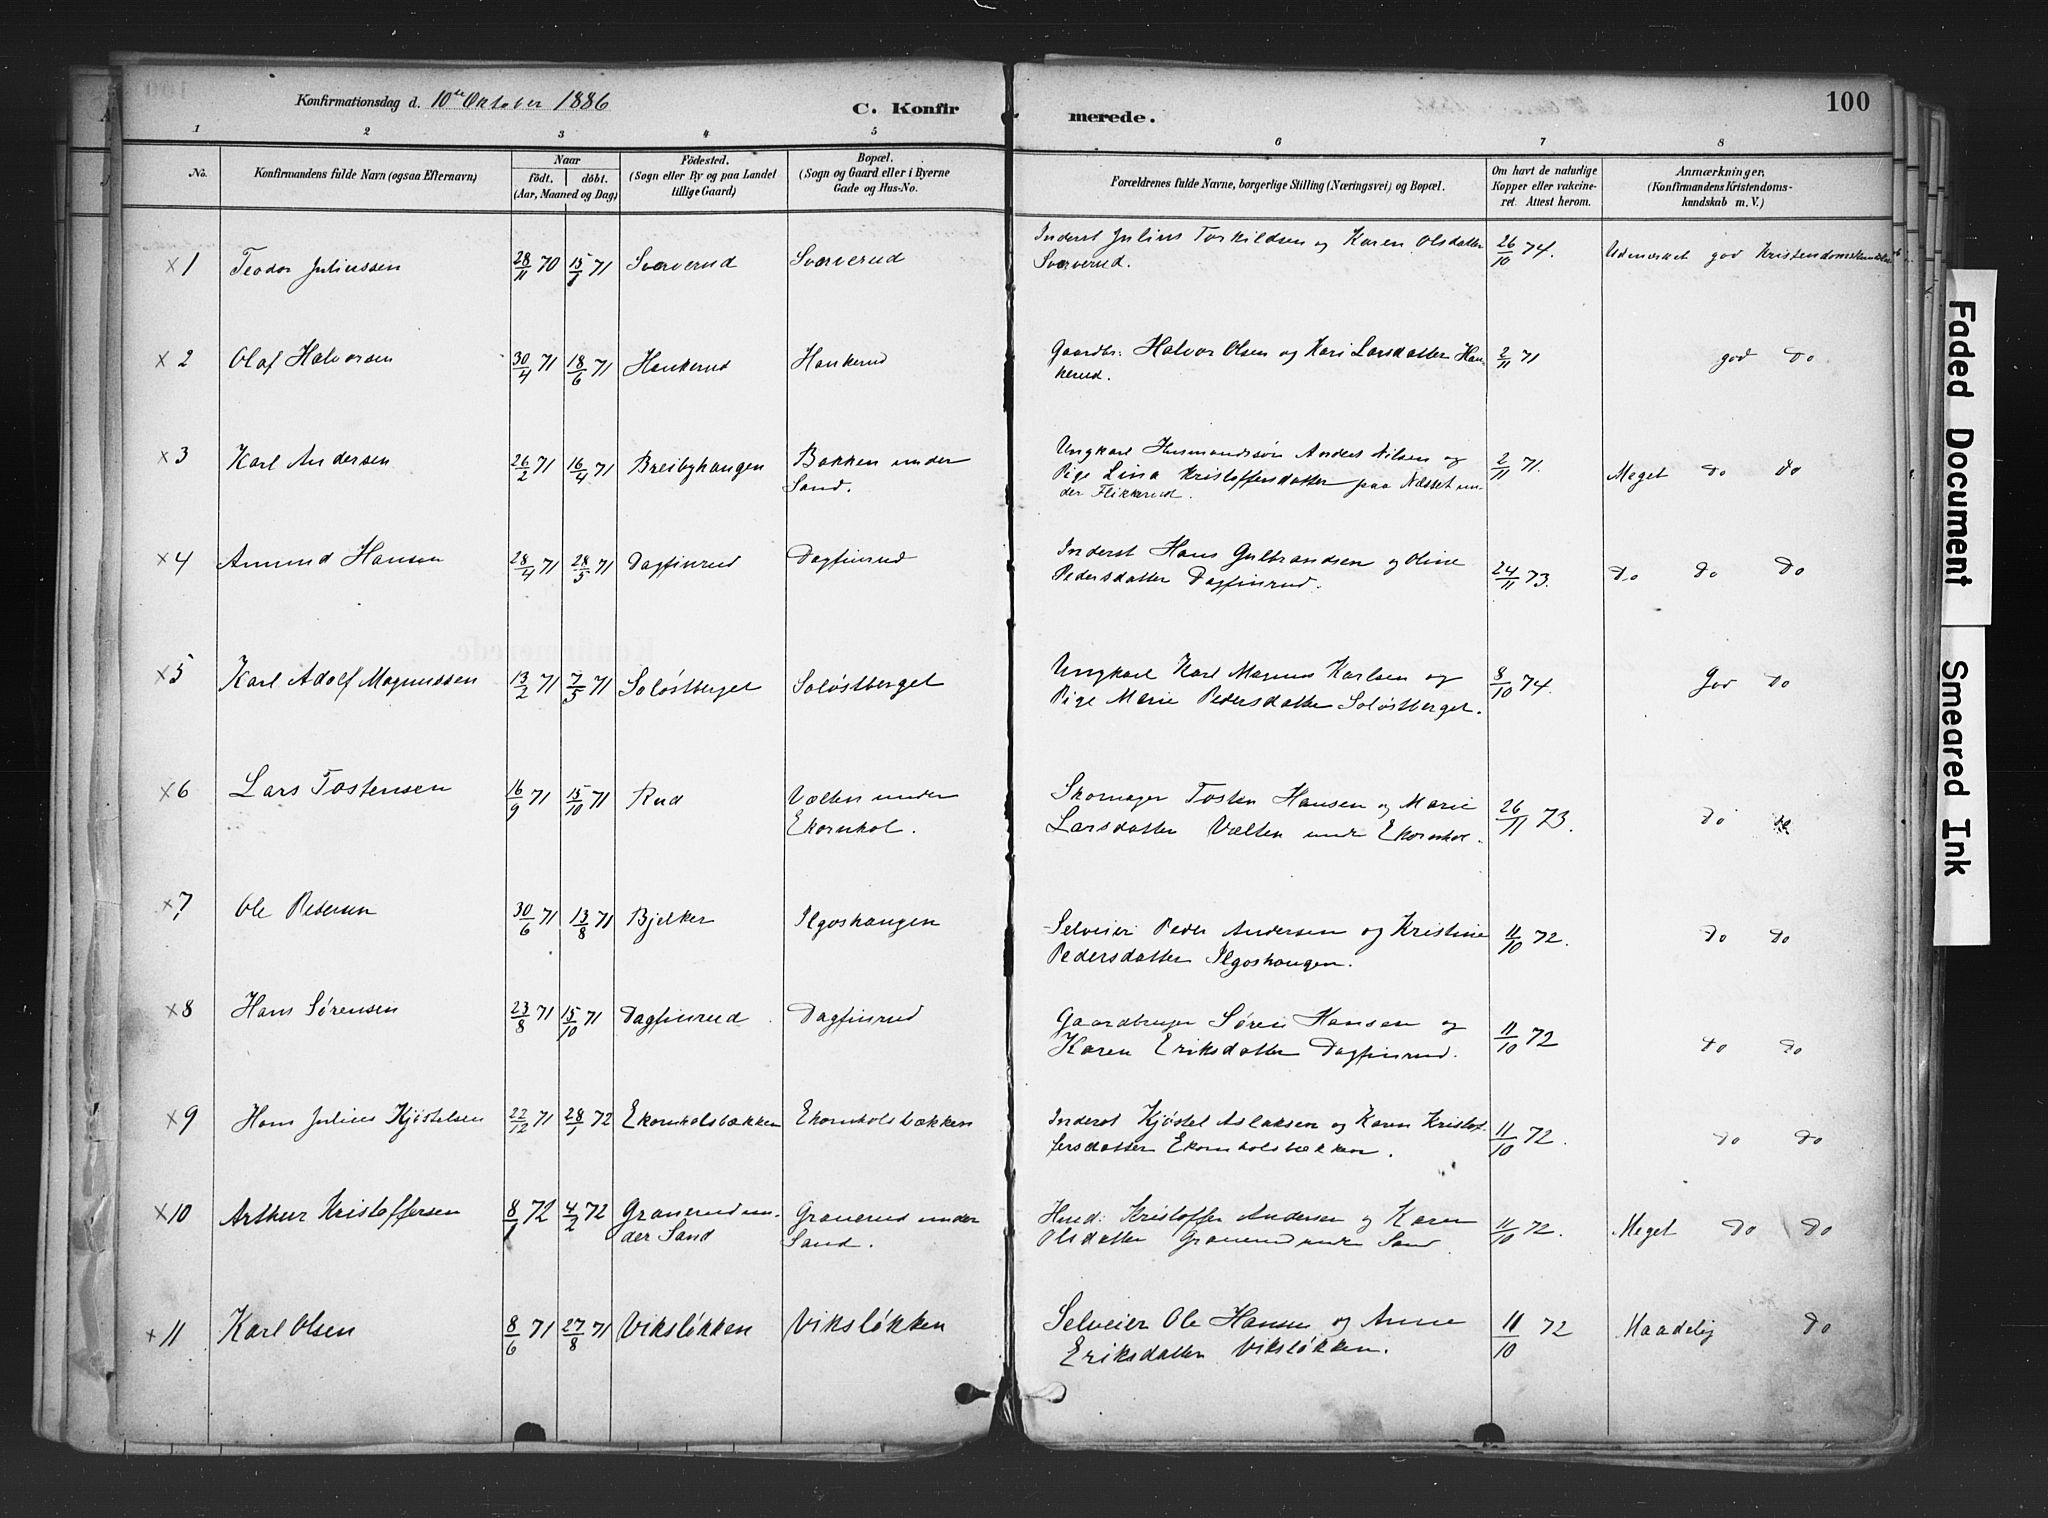 Konfirmationsdag d. 10de Oktober 1886
C. Konfir
merede.
100
1 2 3 4 5 6 7 8
No.
Konfirmandens fulde Navn (ogsaa Efternavn)
Naar
födt. döbt.
(Aar, Maaned og Dag)
Födested.
(Sogn eller By og paa Landet
tillige Gaard)
Bopæl.
(Sogn og Gaard eller i Byerne
Gade og Hus-No.
Forældrenes fulde Navne, borgerlige Stilling (Næringsvei) og Bopæl.
Om havt de naturlige
Kopper eller vakcine-
ret. Attest herom.
Anmærkninger,
(Konfirmandens Kristendoms-
kundskab m. V.)
x 1 Teodor Juliussen 28/11 70 15/1 71 Sværverud Sværverud
Inderst Julius Torkildsen og Karen Olsdatter
Sværverud.
26/10 74. Udmærket god Kristendomskundskab
x 2 Olaf Halvorsen 30/4 71 18/6 71 Haukerud Haukerud
Gaardbr: Halvor Olsen og Kari Larsdatter Hau-
kerud.
2/11 71 god do
x 3 Karl Andersen 26/2 71 16/4 71 Breibyhaugen Bakken under
Sand.
Ungkarl Husmandssøn Anders Nilsen og
Pige Lina Kristoffersdatter paa Næsset un-
der Flikkerud.
2/11 71. Meget do do
x 4 Amund Hansen 28/4 71 28/5 71 Dagfinrud Dagfinrud
Inderst Hans Gulbrandsen og Oline
Pedersdatter Dagfinrud.
24/11 73. do do do
x 5 Karl Adolf Magnussen 13/2 71 7/5 71 Soløstberget Soløstberget
Ungkarl Karl Magnus Karlsen og
Pige Marie Pedersdatter Soløstberget.
8/10 74. God do
x 6 Lars Tostensen 16/9 71 15/10 71 Rud Vælten under
Ekornhol.
Skomager Tosten Hansen og Marie
Larsdatter Vælten under Ekornhol.
26/11 73. do do
x 7 Ole Pedersen 30/6 71 13/8 71 Bjelker Ilgoshaugen
Selveier Peder Andersen og Kristine
Pedersdatter Ilgoshaugen.
11/10 72. do do
x 8 Hans Sørensen 23/8 71 15/10 71 Dagfinrud Dagfinrud
Gaardbruger Søren Hansen og
Karen Eriksdatter Dagfinrud.
11/10 72 do do
x 9 Hans Julius Kjøstelsen 22/12 71 28/1 72 Ekornholsbækken Ekornholsbækken
Inderst Kjøstel Aslaksen og Karen Kristof-
fersdatter Ekornholsbækken.
11/10 72. do do
x 10 Arthur Kristoffersen 8/1 72 4/2 72 Granerud un-
der Sand
Granerud under
Sand.
Husd: Kristoffer Andersen og Karen
Olsdatter Granerud under Sand.
11/10 72. Meget do do
x 11 Karl Olsen 8/6 71 27/8 71 Viksløkken Viksløkken
Selveier Ole Hansen og Anne
Eriksdatter Viksløkken.
11/10 72 Maadelig do
Faded Document
Smeared Ink